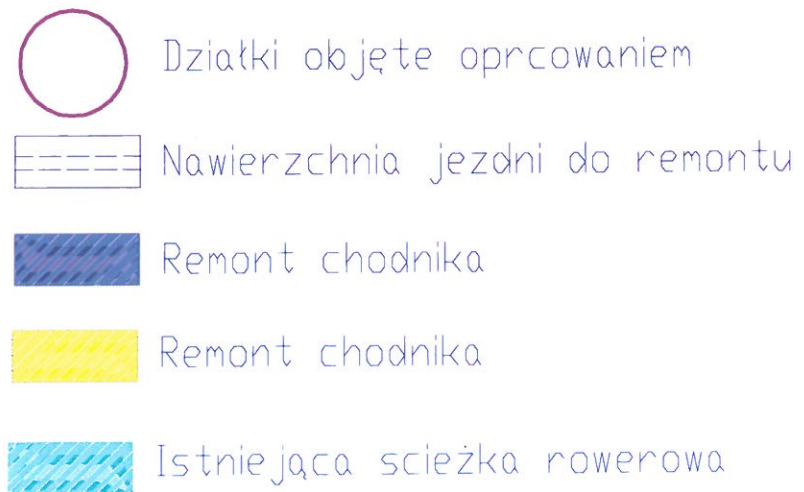 Działki objęte oprcowaniem
Nawierzchnia jezdni do remontu
Remont chodnika
Remont chodnika
Istniejąca scieżka rowerowa